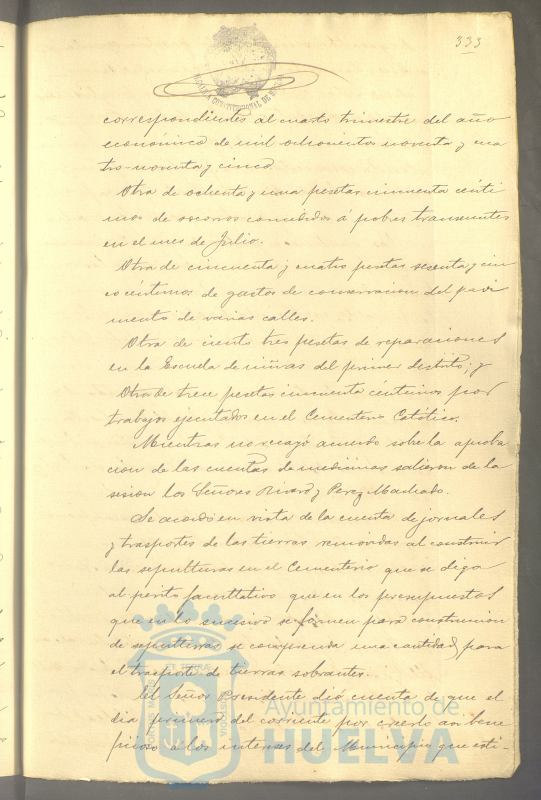 333
correspondientes al cuarto trimestre del año
económico de mil ochocientos noventa y cua
tro-noventa y cinco.
Otra de ochenta y una pesetas cincuenta cénti
mos de socorros concedidos á pobres transeuntes
en el mes de Julio.
Otra de cincuenta y cuatro pesetas sesenta y cin
co céntimos de gastos de conservacion del pavi
mento de varias calles.
Otra de ciento tres pesetas de reparaciones
en la Escuela de niñas del primer distrito; y
Otra de trece pesetas cincuenta céntimos por
trabajos ejecutados en el Cementerio Católico.
Mientras no recayó acuerdo sobre la aproba
cion de las cuentas de medicinas salieron de la
sesion los Señores y Perez Machado.
Se acordó en vista de la cuenta de jornales
y trasportes de las tierras removidas al construir
las sepulturas en el Cementerio que se diga
al perito facultativo que en los presupuestos
que en lo sucesivo se formen para construccion
de sepulturas se comprenda una cantidad para
el trasporte de tierras sobrantes.
El Señor Presidente dió cuenta de que el
dia primero del corriente por creerlo asi bene
ficioso á los intereses del Municipio que esti-
Ayuntamiento de
HUELVA